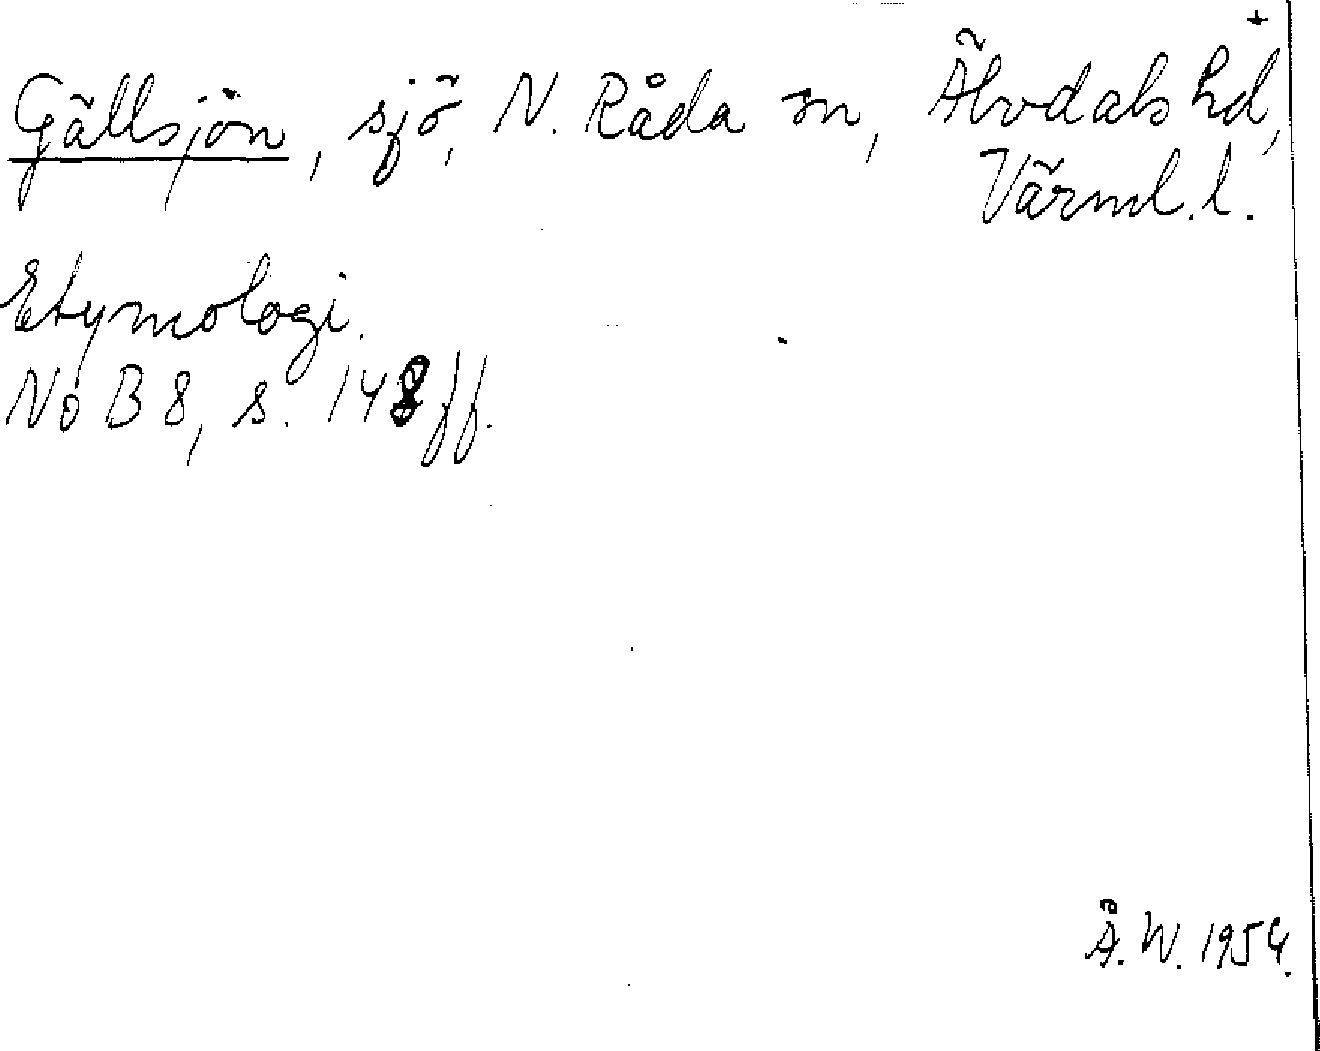 Gällsjön, sjö, N. Råda sn, Älvdals hd,
Värml. l.
Etymologi.
NoB 8, s. 148 ff.
Å. W. 1954.